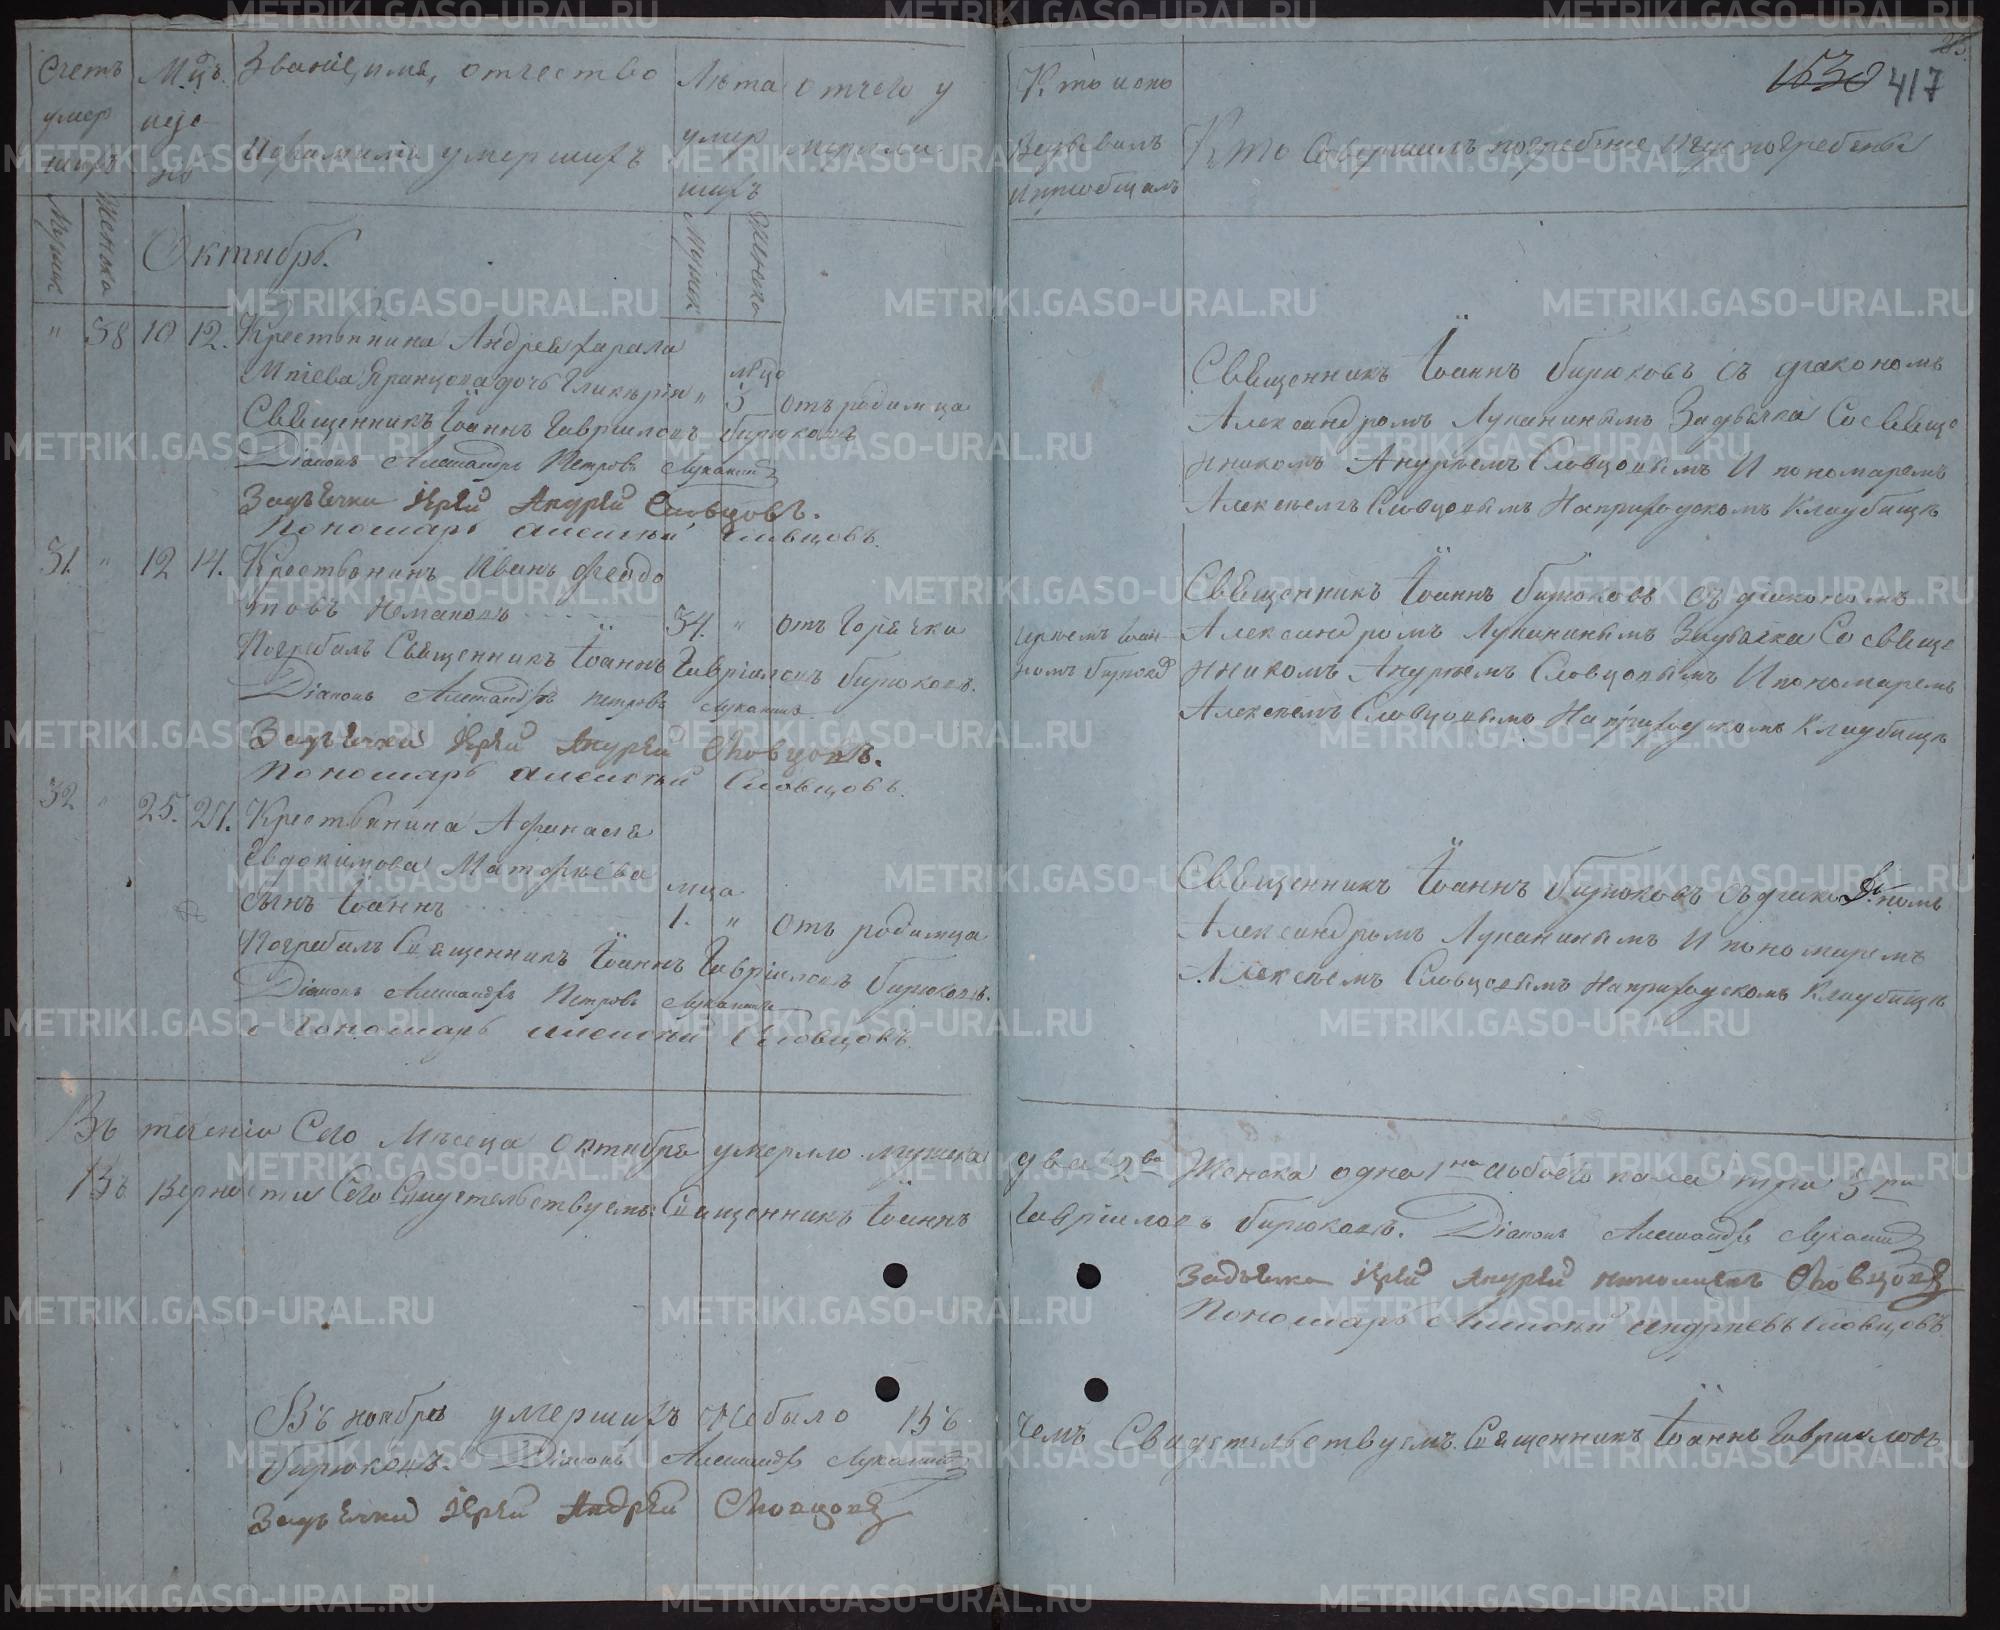 Счетъ умер шихъ
Мужик Женска
Мцъ. иде нь
Званіе, имя, отчество
и фамилія умершихъ
Лѣта умер шихъ
Мужик Женска
отчего у мерли
Кто исповѣдывалъ и пріобщалъ
Кто Совершилъ погребеніе и гдѣ погребены
1530 417
Октябрь.
" 38 10 12. Крестьянина Андрея
дочь Гликерія " мцо 3 отъ родимца
Священникъ Іоаннъ Гавріиловъ Бирюковъ
Діаконъ Александръ Петровъ Луканинъ
Задьячка Іерей Андрей Словцовъ.
Пономарь Алексѣй Словцовъ.
Священникъ Іоаннъ Бирюковъ съ діакономъ
Александромъ Луканинымъ Задьячка Со свяще
нникомъ Андреемъ Словцовымъ И пономаремъ
Алексѣемъ Словцовымъ На приходскомъ Кладбищѣ
31. " 12 14. Крестьянинъ Иванъ Ѳеодо
товъ 54. " отъ Горячки
Погребалъ Священникъ Іоаннъ Гавріиловъ Бирюковъ.
Діаконъ Александръ Петровъ Луканинъ
Задьячка Іерей Андрей Словцовъ.
Пономарь Алексѣй Словцовъ.
Іереемъ Іоан
номъ Бирюков
Священникъ Іоаннъ Бирюковъ съ діакономъ
Александромъ Луканинымъ Задьячка Со свяще
нникомъ Андреемъ Словцовымъ И пономаремъ
Алексѣемъ Словцовымъ На приходскомъ Кладбищѣ
32 " 25. 27. Крестьянина Афанасія
Евдокимова Матфѣева
сынъ Іоаннъ мца 1. " отъ родимца
Погребалъ Священникъ Іоаннъ Гавріиловъ Бирюковъ.
Діаконъ Александръ Петровъ Луканинъ
Пономарь Алексѣй Словцовъ.
Священникъ Іоаннъ Бирюковъ съ діакономъ
Александромъ Луканинымъ И пономаремъ
Алексѣемъ Словцовымъ На приходскомъ Кладбищѣ
Въ теченіи Сего Мѣсяца октября умерло мужска два 2ва Женска одна 1на обоего пола три 3ри
Въ верности Сего Свидетельствуемъ: Священникъ Іоаннъ Гавріиловъ Бирюковъ. Діаконъ Александръ Луканинъ
Задьячка Іерей Андрей Словцовъ
Пономарь Алексѣй Андреевъ Словцовъ
Въ ноябрѣ умершихъ Небыло Въ чемъ Свидетельствуемъ. Священникъ Іоаннъ Гавриловъ
Бирюковъ. Діаконъ Александръ Луканинъ
Задьячка Іерей Андрей Словцовъ
METRIKI.GASO-URAL.RU